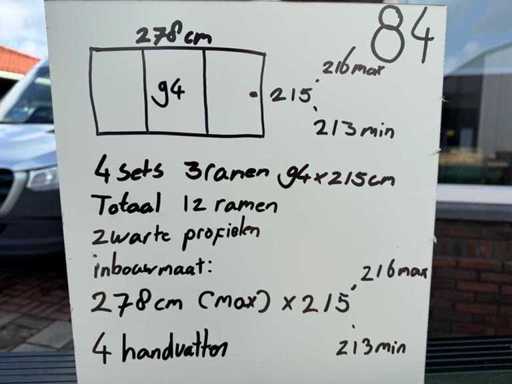 84
278 cm
94
215
216 max
213 min
4 sets 3 ramen 94 x 215 cm
Totaal 12 ramen
zwarte profielen
inbouwmaat:
278 cm (max) x 215
216 max
213 min
4 handvatten